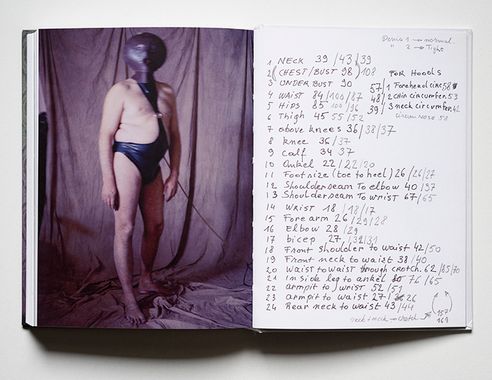 Denis 1 → normal.
" 2 → Tight
1 NECK 39 /43/39
2 (CHEST/BUST 98) 108
3 UNDER BUST 90
4 WAIST 84/100/87
5 HIPS 85/100/96
6 Thigh 45 55/52
7 above knees 36/38/37
8 knee 36/37
9 calf 34 37
10 Ankel 22/22/20
11 Foot size (toe to heel) 26/26/27
12 Shoulderseam To elbow 40/37
13 Shoulderseam To wrist 67/65
14 WRIST 18/18/17
15 Fore arm 26/29/28
16 Elbow 28/29
17 bicep 27,/32/31
18 Front shoulder to waist 42/50
19 Front neck to waist 38/40
20 Waist to waist through crotch. 62/85/70
21 inside leg to ankel 76/65
22 armpit to wrist 52/51
23 armpit to waist 27/26
24 Rear neck to waist 43/44
neck → neck → crotch
157
161
FOR HOODS
57 1 Forehead circ 58
48 2 chin circumferen. 53
39 3 neck circumferen. 42
circum Nose 58